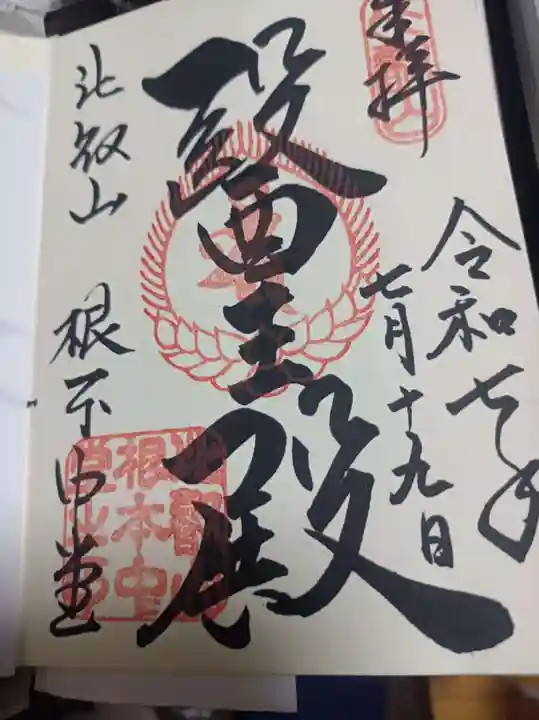 奉拝
令和七年
七月十九日
醫王殿
比叡山 根本中堂
比叡山
根本中堂
之印